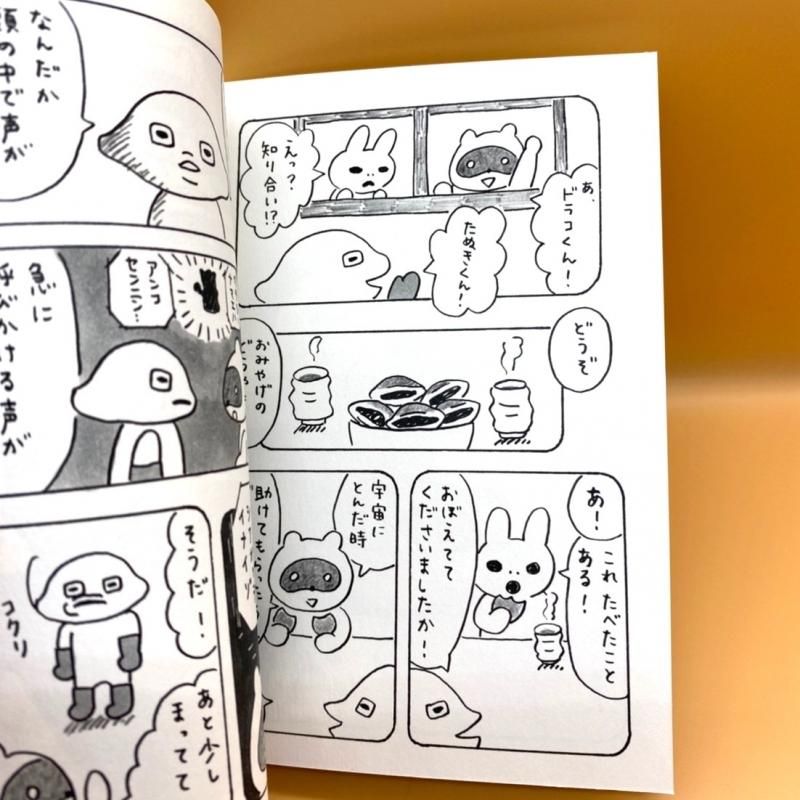 あ、
ドラコくん!
たぬきくん!
えっ?
知り合い!?
どうぞ
おみやげの
あ!
これ たべたこと
ある!
おぼえてて
くださいましたか!
宇宙に
とんだ時
助けてもらった
なんだか
頭の中で声が
アンコ
センニン…
急に
呼びかける声が
そうだー!
コクリ
あと少し
まってて